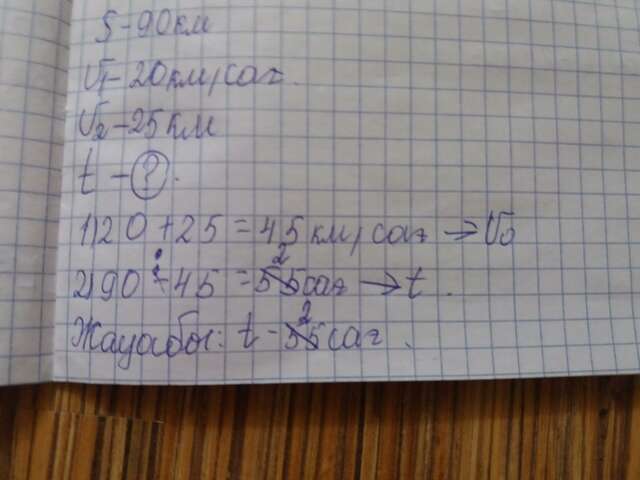 S-90км
V1-20км/сағ.
V2-25км
t-?.
1)20+25=45км/сағ→V0
2)90:45=55 2сағ→t.
Жауабы: t-55 2сағ.